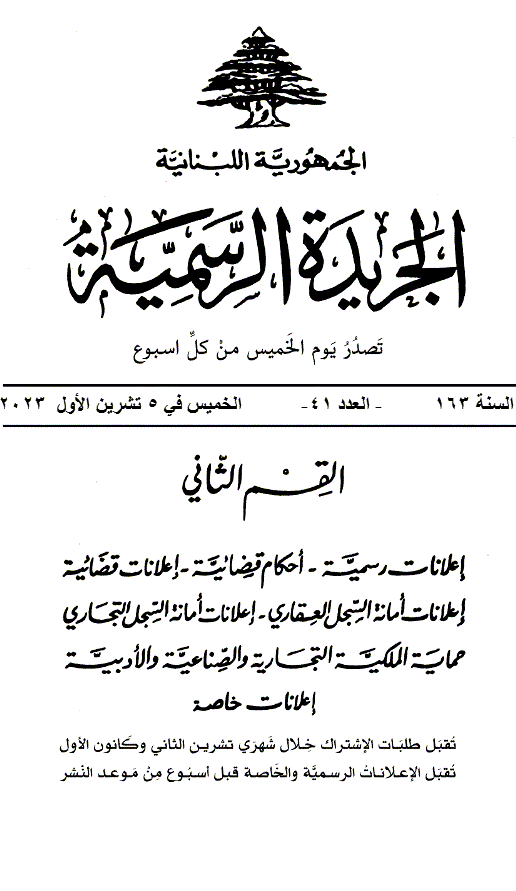 الجُمهُوريَّة اللبْنانيَّة
الجَريدَة الرسَّمِيَّة
تَصدُرُ يَوم الخَميس منْ كلِّ اسبوع
السنة ١٦٣ - العدد ٤١- الخميس في ٥ تشرين الأول ٢٠٢٣
القِسْم الثّاني
إعلانات رسميَّة - أحكام قضائيَّة - إعلانات قضائية
إعلانات أمانة السّجل العقاري - إعلانات أمانة السّجل التجاري
حماية الملكيَّة التجارية والصّناعيَّة والأدبيَّة
إعلانات خاصة
تُقبَل طلبَات الإشتراك خِلال شَهرَي تشرين الثاني وكَانون الأول
تُقبَل الإعلاناتُ الرسميَّة والخَاصة قبل أسبُوع مِنْ مَوعد النَشر